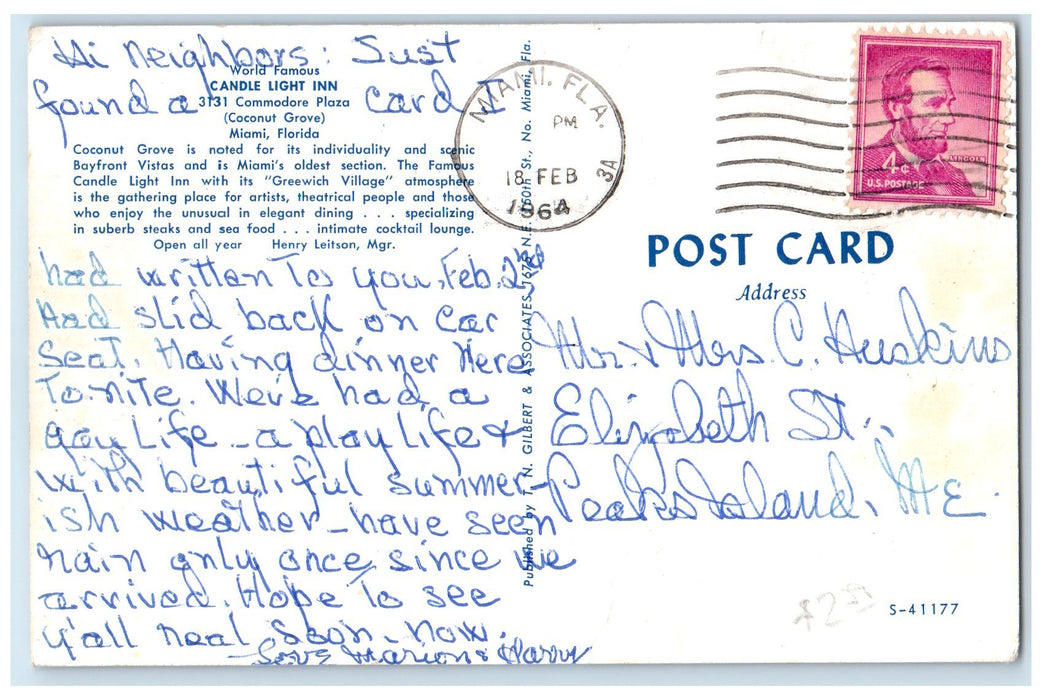 Hi Neighbors: Just
World Famous
CANDLE LIGHT INN
found a card I
3131 Commodore Plaza
(Coconut Grove)
Miami, Florida
Coconut Grove is noted for its individuality and scenic
Bayfront Vistas and is Miami's oldest section. The Famous
Candle Light Inn with its "Greewich Village" atmosphere
is the gathering place for artists, theatrical people and those
who enjoy the unusual in elegant dining . . . specializing
in suburb steaks and sea food . . . intimate cocktail lounge.
Open all year Henry Leitson, Mgr.
had written to you, Feb. 2nd
Had slid back on car
seat. Having dinner here
to-nite. We've had a
gay life - a play life &
with beautiful summer-
ish weather - have seen
rain only once since we
arrived. Hope to see
y'all real soon - now.
Love Marion & Harry
Published by T. N. GILBERT & ASSOCIATES, 1675 N.E. 160th St., No. Miami, Fla.
MIAMI, FLA.
PM
18 FEB
1964
3A
4¢
LINCOLN
U.S. POSTAGE
POST CARD
Address
Mr. & Mrs. C. Huskins
Elizabeth St.,
Peaks Island, ME.
$2.00
S-41177